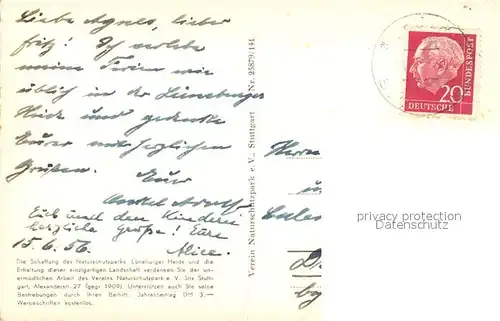 Liebe Agnes, lieber
Fritz! Ich verlebe
meine Ferien wie
üblich in der Lüneburger
Heide und gedenke
Eurer mit herzlichen
Grüßen. Euer
Onkel Adolf
Euch und den Kindern
herzliche Grüße! Eure
15.6.56. Alice.
Die Schaffung des Naturschutzparks Lüneburger Heide und die
Erhaltung dieser einzigartigen Landschaft verdanken Sie der un-
ermüdlichen Arbeit des Vereins Naturschutzpark e. V. Sitz Stutt-
gart, Alexanderstr. 27 (gegr. 1909). Unterstützen auch Sie seine
Bestrebungen durch Ihren Beitritt. Jahresbeitrag DM 3.—
Werbeschriften kostenlos.
Verein Naturschutzpark e. V., Stuttgart Nr. 25879/141
DEUTSCHE
BUNDESPOST
20
Herrn
u.
privacy protection
Datenschutz